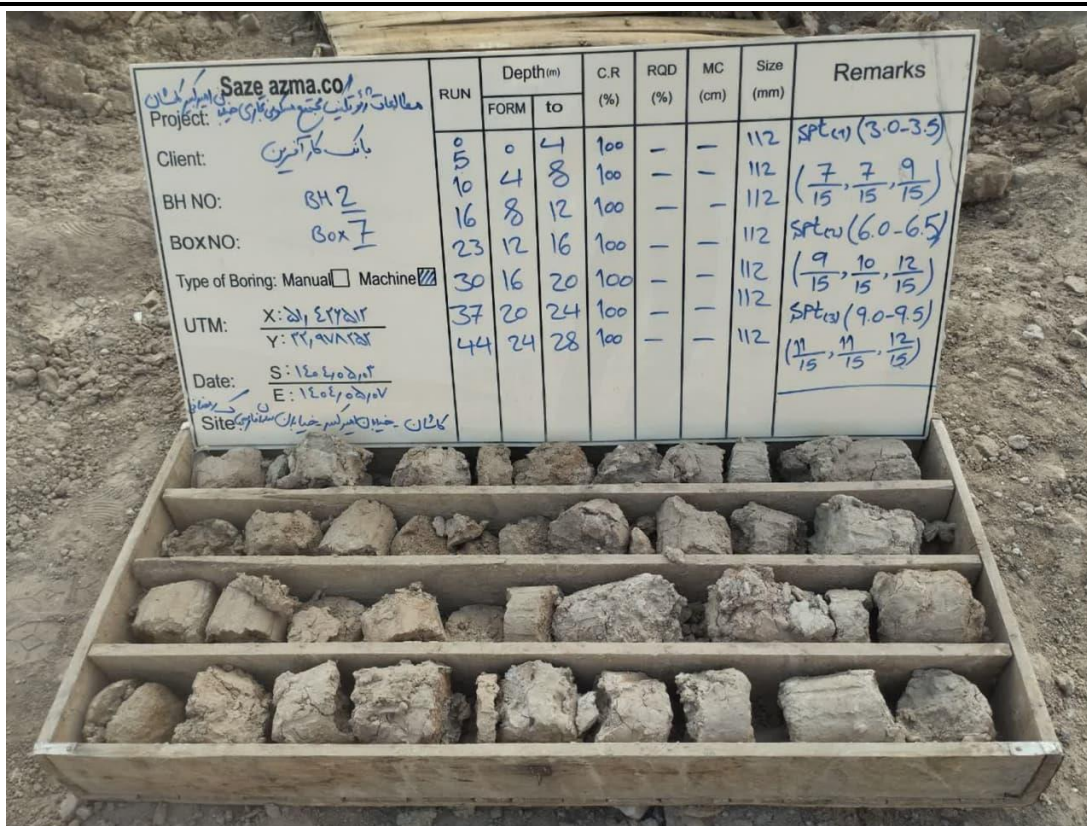 Saze azma.co
Project: مطالعات ژئوتکنیک مجتمع مسکونی تجاری خیابان امیرکبیر کاشان
Client: بانک کارآفرین
BH NO: BH 2
BOX NO: Box 7
Type of Boring: Manual Machine
UTM: X: ۵۱,۴۲۲۵۱۲
Y: ۳۳,۹۷۸۲۵۲
Date: S: ۱۴۰۴,۰۵,۰۳
E: ۱۴۰۴,۰۵,۰۷
Site کاشان - خیابان امیرکبیر - خیابان
RUN Depth(m) C.R (%) RQD (%) MC (cm) Size (mm) Remarks
FORM to
0 0 4 100 — — 112 Spt(1) (3.0-3.5)
5
10 4 8 100 — — 112 (7/15, 7/15, 9/15)
16 8 12 100 — — 112 Spt(2) (6.0-6.5)
23 12 16 100 — — 112 (9/15, 10/15, 12/15)
30 16 20 100 — — 112
37 20 24 100 — — 112 Spt(3) (9.0-9.5)
44 24 28 100 — — 112 (11/15, 11/15, 12/15)